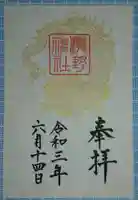 奉拝
神社
令和三年
六月十四日